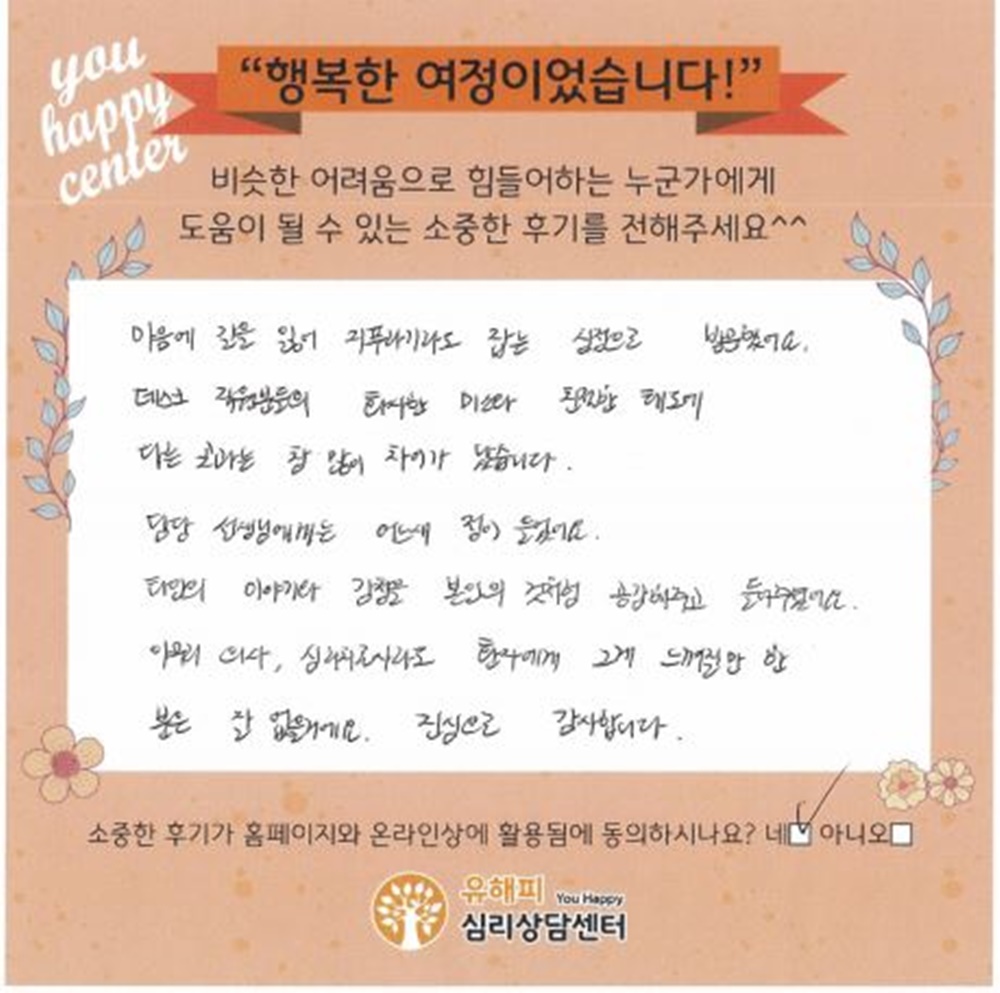 you
happy
center
“행복한 여정이었습니다!”
비슷한 어려움으로 힘들어하는 누군가에게
도움이 될 수 있는 소중한 후기를 전해주세요^^
마음에 길을 잃어 지푸라기라도 잡는 심정으로 방문했어요.
데스크 직원분들의 화사한 미소와 친절한 태도에
다른 곳과는 참 많이 차이가 났습니다.
담당 선생님에게는 어느새 정이 들었어요.
타인의 이야기와 감정을 본인의 것처럼 공감해주고 들어주셨어요.
아무리 의사, 심리치료사라도 환자에게 그게 느껴질만 한
분은 잘 없을거에요. 진심으로 감사합니다.
소중한 후기가 홈페이지와 온라인상에 활용됨에 동의하시나요? 네 아니오
유해피 You Happy
심리상담센터